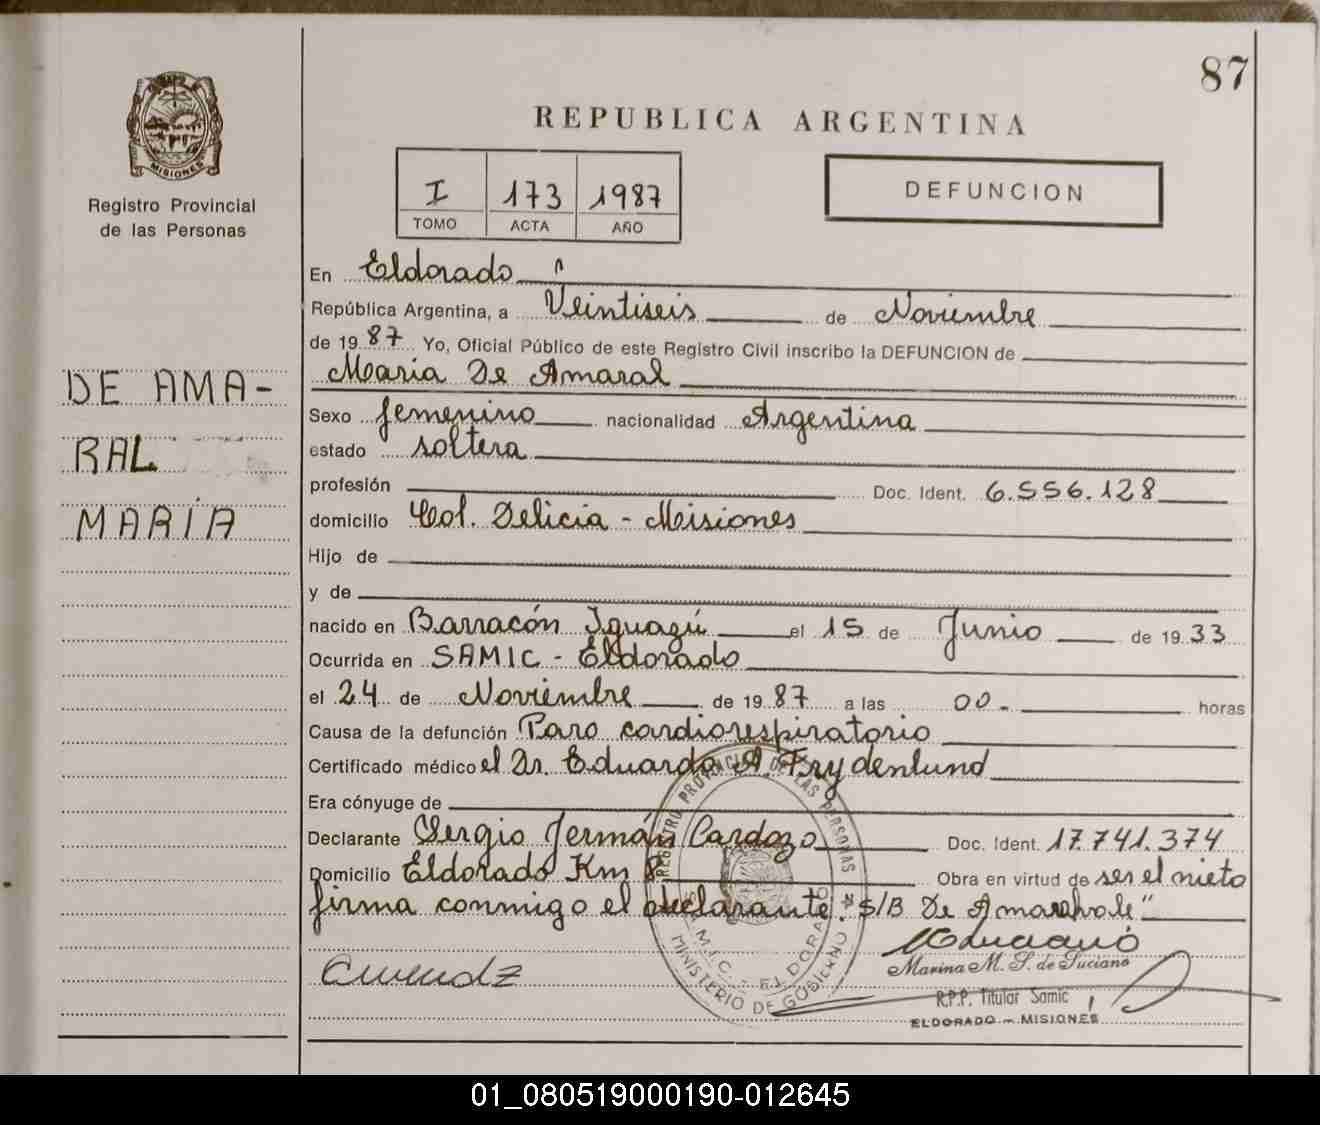 87
REPUBLICA ARGENTINA
I 173 1987
TOMO ACTA AÑO
DEFUNCION
MISIONES
Registro Provincial
de las Personas
DE AMA-
RAL
MARÍA
En Eldorado
República Argentina, a Veintiseis de Noviembre
de 1987 Yo, Oficial Público de este Registro Civil inscribo la DEFUNCION de
Maria De Amaral
Sexo femenino nacionalidad Argentina
estado soltera
profesión Doc. Ident. 6.556.128
domicilio Col. Delicia - Misiones
Hijo de
y de
nacido en Barracón Iguazú el 15 de Junio de 1933
Ocurrida en SAMIC - Eldorado
el 24 de Noviembre de 1987 a las 00- horas
Causa de la defunción Paro cardiorespiratorio
Certificado médico el Dr. Eduardo A. Frydenlund
Era cónyuge de
Declarante Sergio Jermán Cardozo Doc. Ident. 17.741.374
Domicilio Eldorado Km 8 Obra en virtud de ser el nieto
firma conmigo el declarante. S/B De Amaral vale"
REGISTRO PROVINCIAL DE LAS PERSONAS
S.A.M.I.C. - ELDORADO
MINISTERIO DE GOBIERNO
Marina M. S. de Luciano
R.P.P. Titular Samic
ELDORADO - MISIONES
01_080519000190-012645